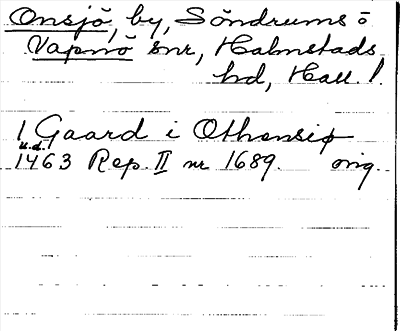 Onsjö, by, Söndrums o
Vapnö snr, Halmstads
hd, Hall. l.
1 Gaard i Othensiø
u.d.
1463 Rep. II nr 1689. orig.